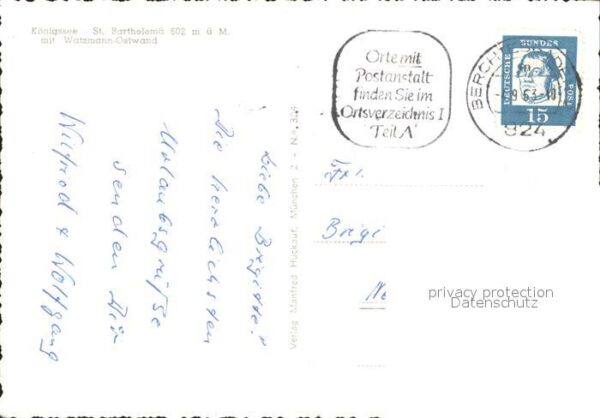 Königssee - St. Bartholomä 602 m ü M.
mit Watzmann-Ostwand
Liebe Brigitte!
Die herzlichsten
Urlaubsgrüße
senden Dir
Wilfried & Wolfgang
Verlag Manfred Huckauf, München 2 - N.r.
Orte mit
Postanstalt
finden Sie im
Ortsverzeichnis I
Teil A'
DEUTSCHE
BUNDES
POST
15
824
Frl.
Brigi
privacy protection
Datenschutz